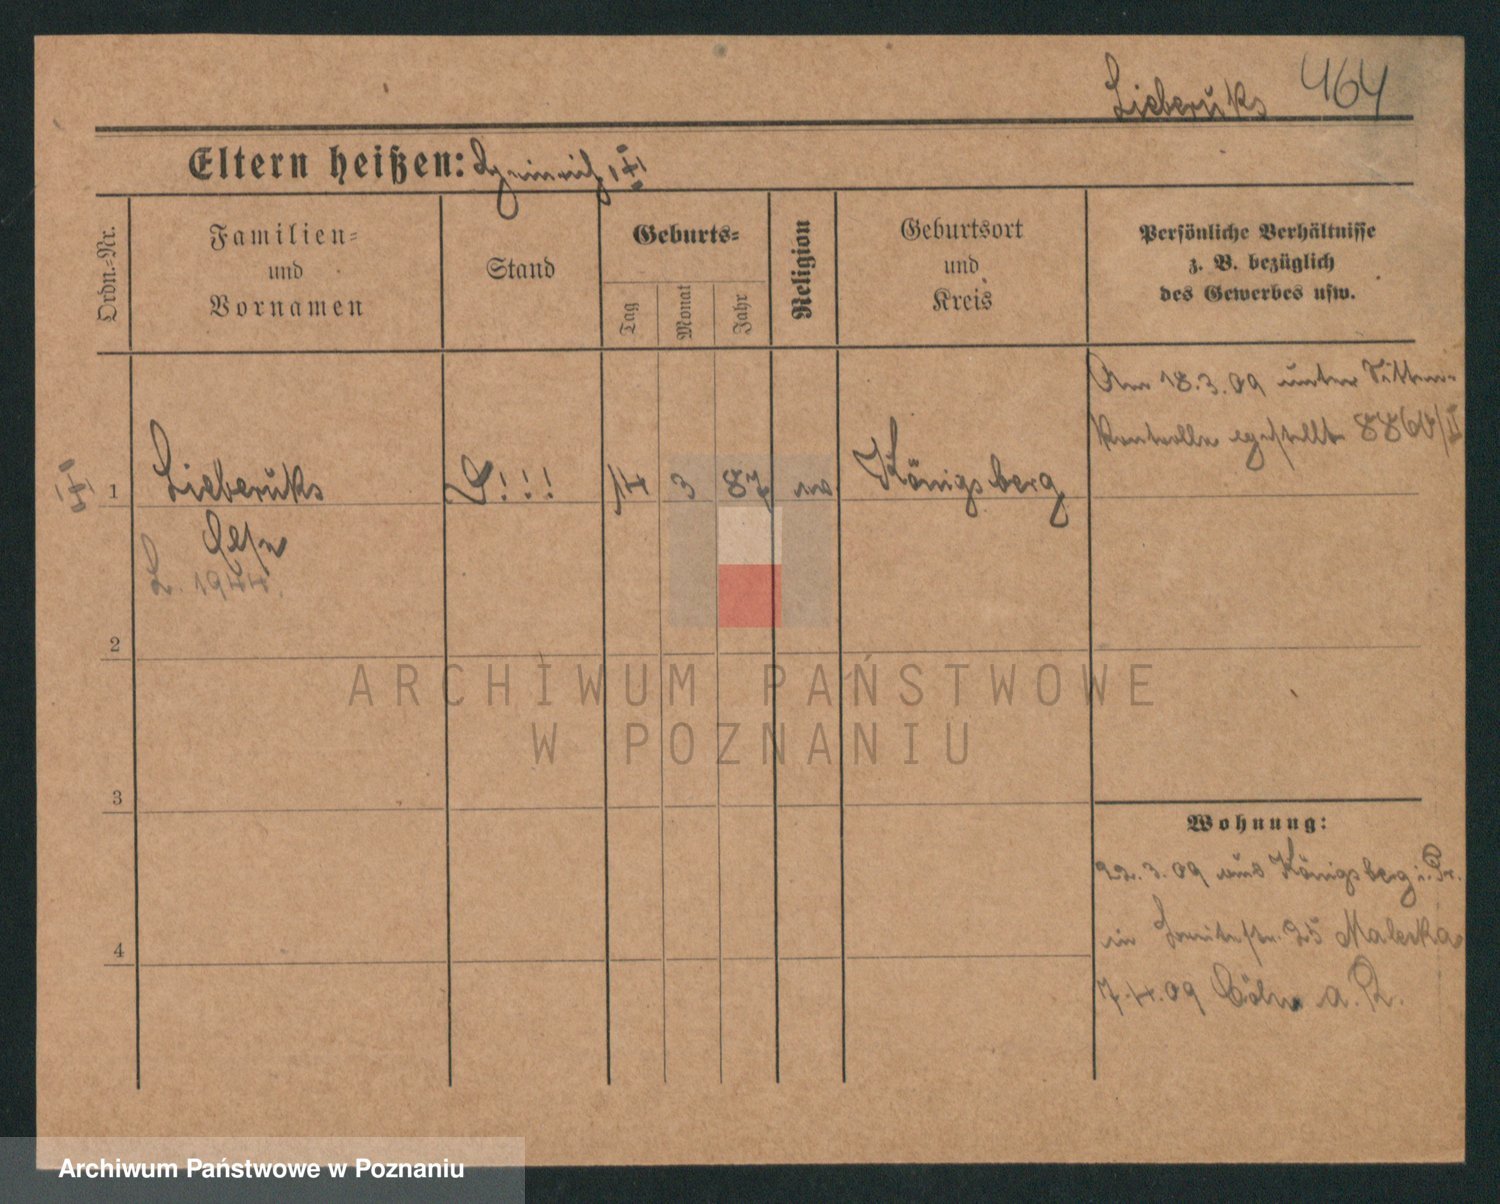 Lieberuks 464
Eltern heißen: Heinrich
Ordn.-Nr.
Familien-
und
Vornamen
Stand
Geburts-
Tag
Monat
Jahr
Religion
Geburtsort
und
Kreis
Persönliche Verhältnisse
z. B. bezüglich
des Gewerbes usw.
Am 18.3.09 unter Sitten-
kontrolle gestellt
1 Lieberuks !!! 14 3 87 Königsberg
Else
L. 1944.
2
3
4
Wohnung:
22.3.09 aus Königsberg i. Pr.
in 25 Maleska
7.4.09 Cöln a. R.
ARCHIWUM PAŃSTWOWE
W POZNANIU
Archiwum Państwowe w Poznaniu